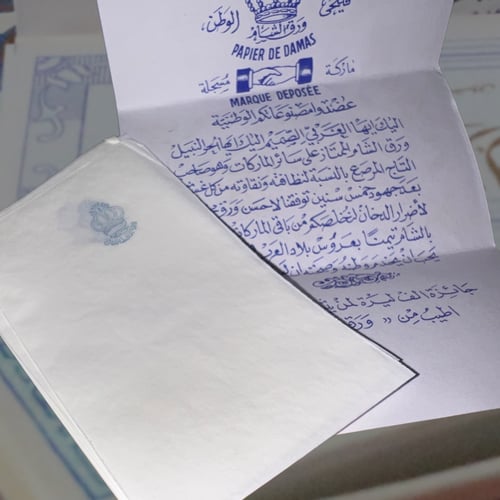 فليحي الوطن
ورق الشام
PAPIER DE DAMAS
ماركة مسجلة
MARQUE DEPOSÉE
عضدوا مصنوعاتكم الوطنية
اليك ايها العربي الصميم اليك ايها الحر النبيل
ورق الشام الممتاز على سائر الماركات وهو صاحب
التاج المرصع بالنسبة لنظافته ونقاوته من كل غش
بعد جهود خمس سنين توفقنا لاحسن ورق
لأضرار الدخان ليخلصكم من باقي الماركات
بالشام تيمناً بعروس بلاد العرب
جائزة الف ليرة لمن
اطيب من « ورق